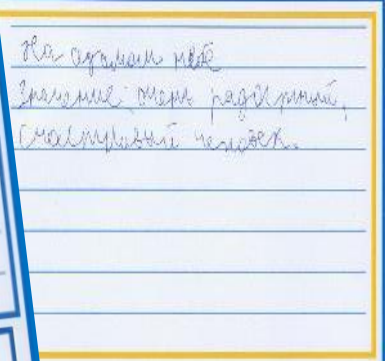 На седьмом небе
Значение: очень радостный,
счастливый человек.